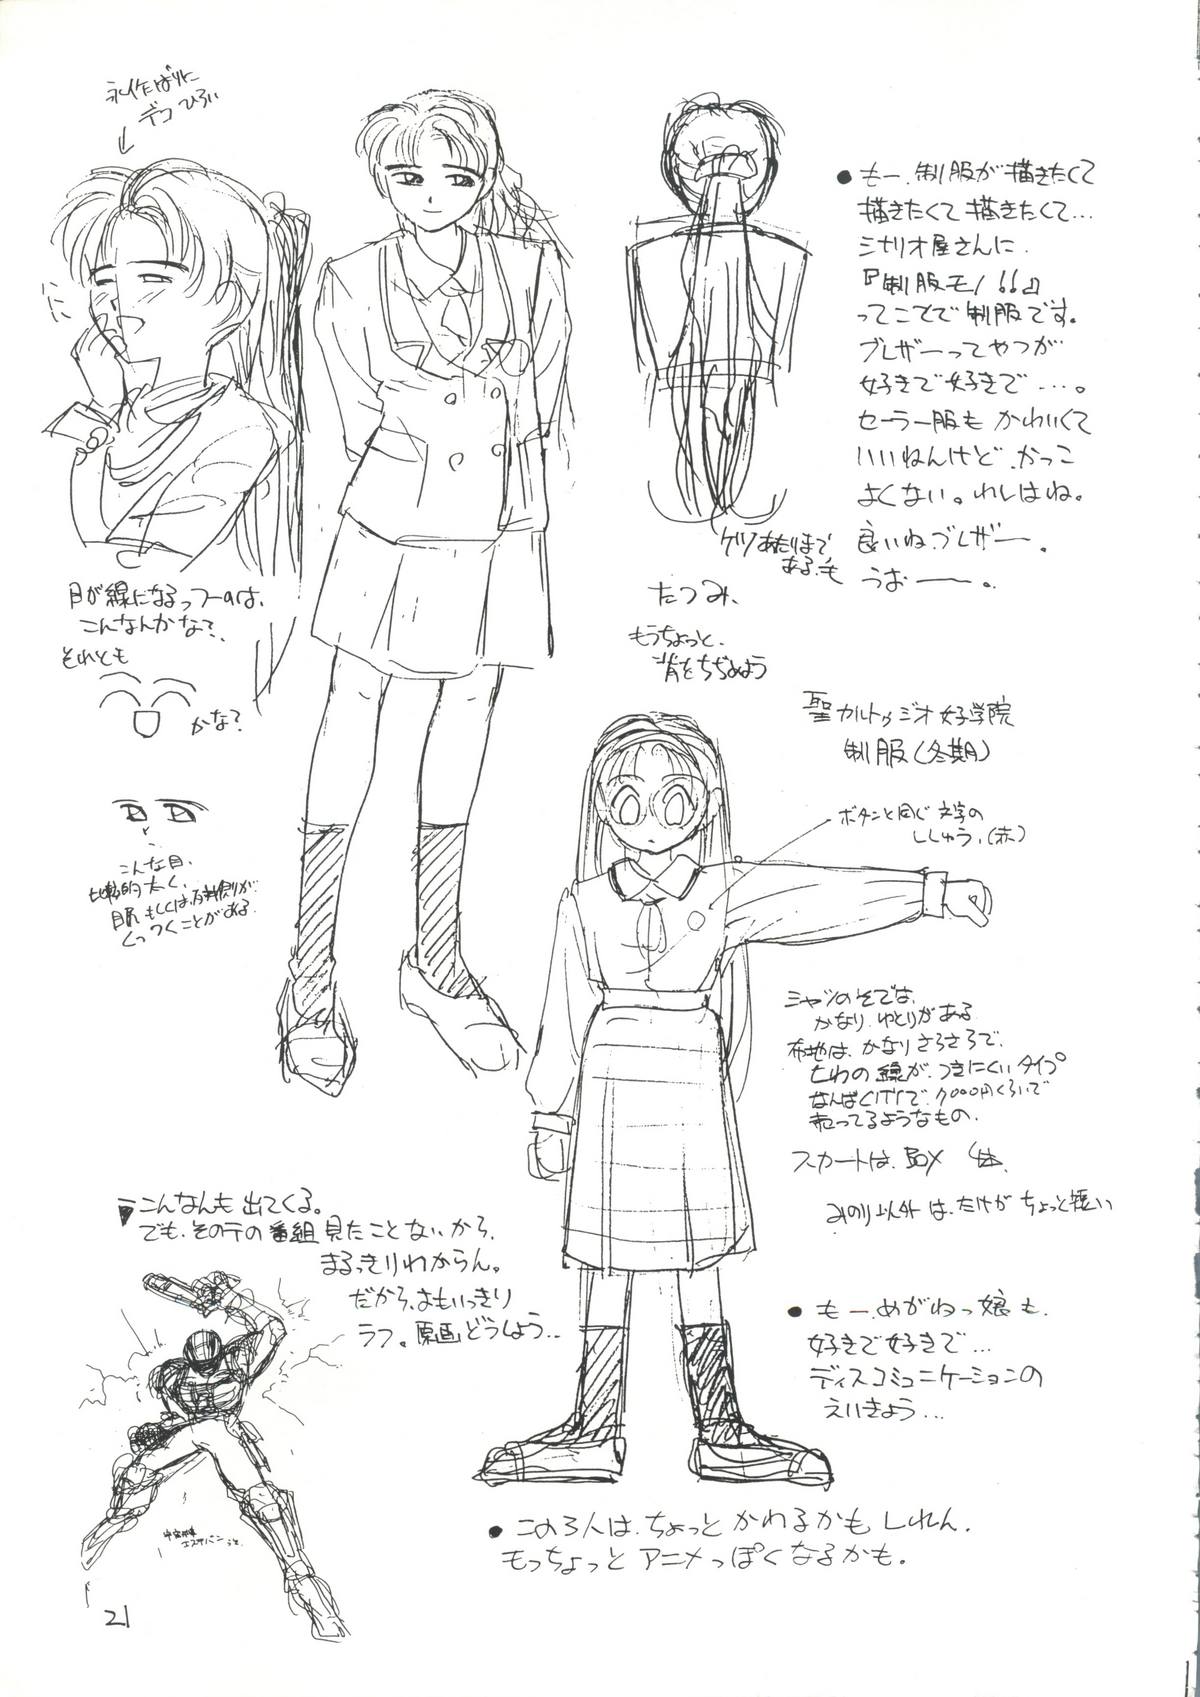 デコ ひろい
● もー、制服が描きたくて
描きたくて描きたくて…
シナリオ屋さんに、
『制服モノ!!』
ってことで制服です。
ブレザーってやつが
好きで好きで…。
セーラー服も かわいくて
いいねんけど、かっこ
よくない。わしはね。
良いね、ブレザー。
うおー。
ケツあたりまで
ある、毛
たつみ、
もうちょっと、
背をちぢめよう
目が線になるっつーのは、
こんなんかな?
それとも
かな?
こんな目、
比較的太く、
くっつくことがある。
聖カルトゥジオ女子学院
制服(冬期)
ボタンと同じ文字の
ししゅう、(赤)
シャツのそでは、
かなり、ゆとりがある
布地は、かなりさらさらで、
しわの線が、つきにくいタイプ
なんばCITYで、
売ってるようなもの。
スカートは、BOX
みのり以外は、たけがちょっと短い
▼こんなんも出てくる。
でも、そのテの番組見たことないから、
まるっきりわからん。
だから、おもいっきり
ラフ。原画どうしよう…
● もーめがねっ娘も、
好きで好きで…
ディスコミュニケーションの
えいきょう…
● この3人は、ちょっとかわるかもしれん。
もっちょっとアニメっぽくなるかも。
21